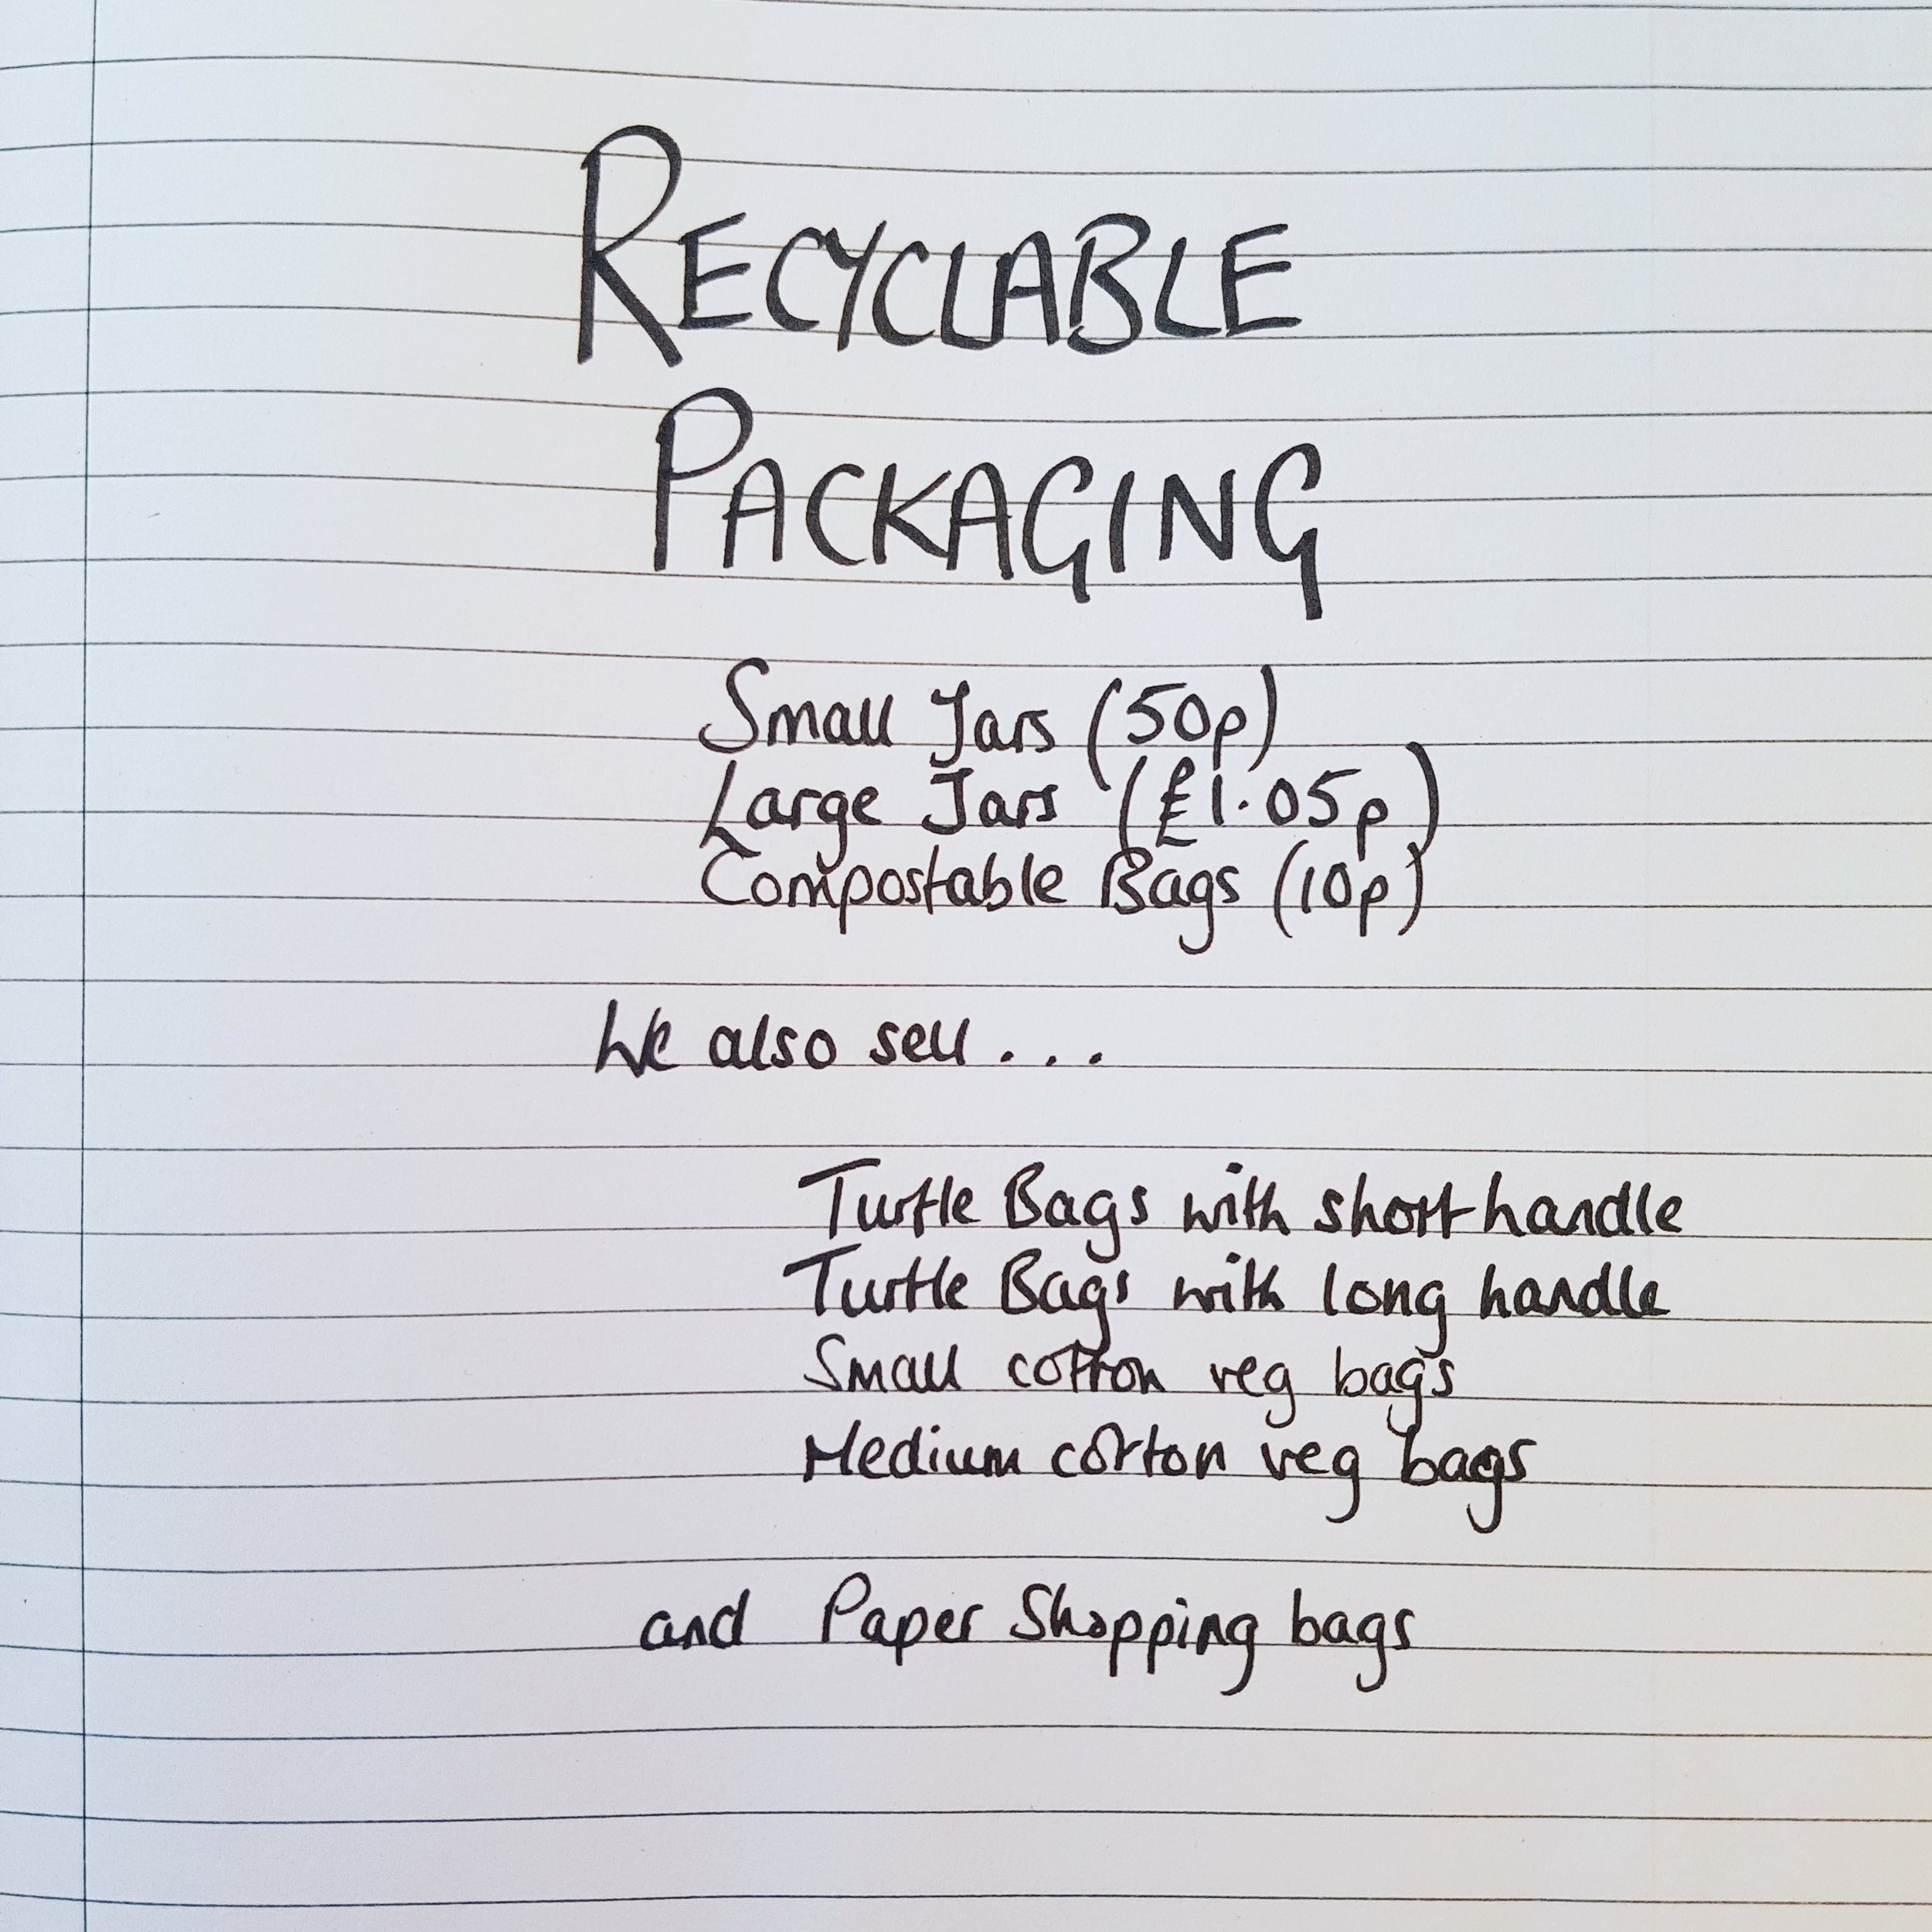 RECYCLABLE
PACKAGING
Small Jars (50p)
Large Jars (£1.05p)
Compostable Bags (10p)
We also sell...
Turtle Bags with short handle
Turtle Bags with long handle
Small cotton veg bags
Medium cotton veg bags
and Paper Shopping bags